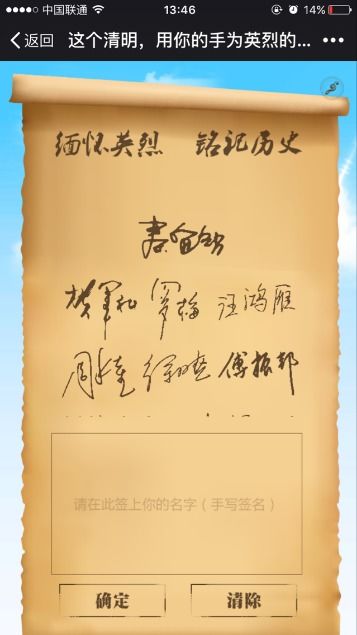 中国联通 13:46 14%
返回 这个清明，用你的手为英烈的...
缅怀英烈 铭记历史
罗梅 汪鸿雁
周长奎 徐晓 傅振邦
请在此签上你的名字（手写签名）
确定 清除